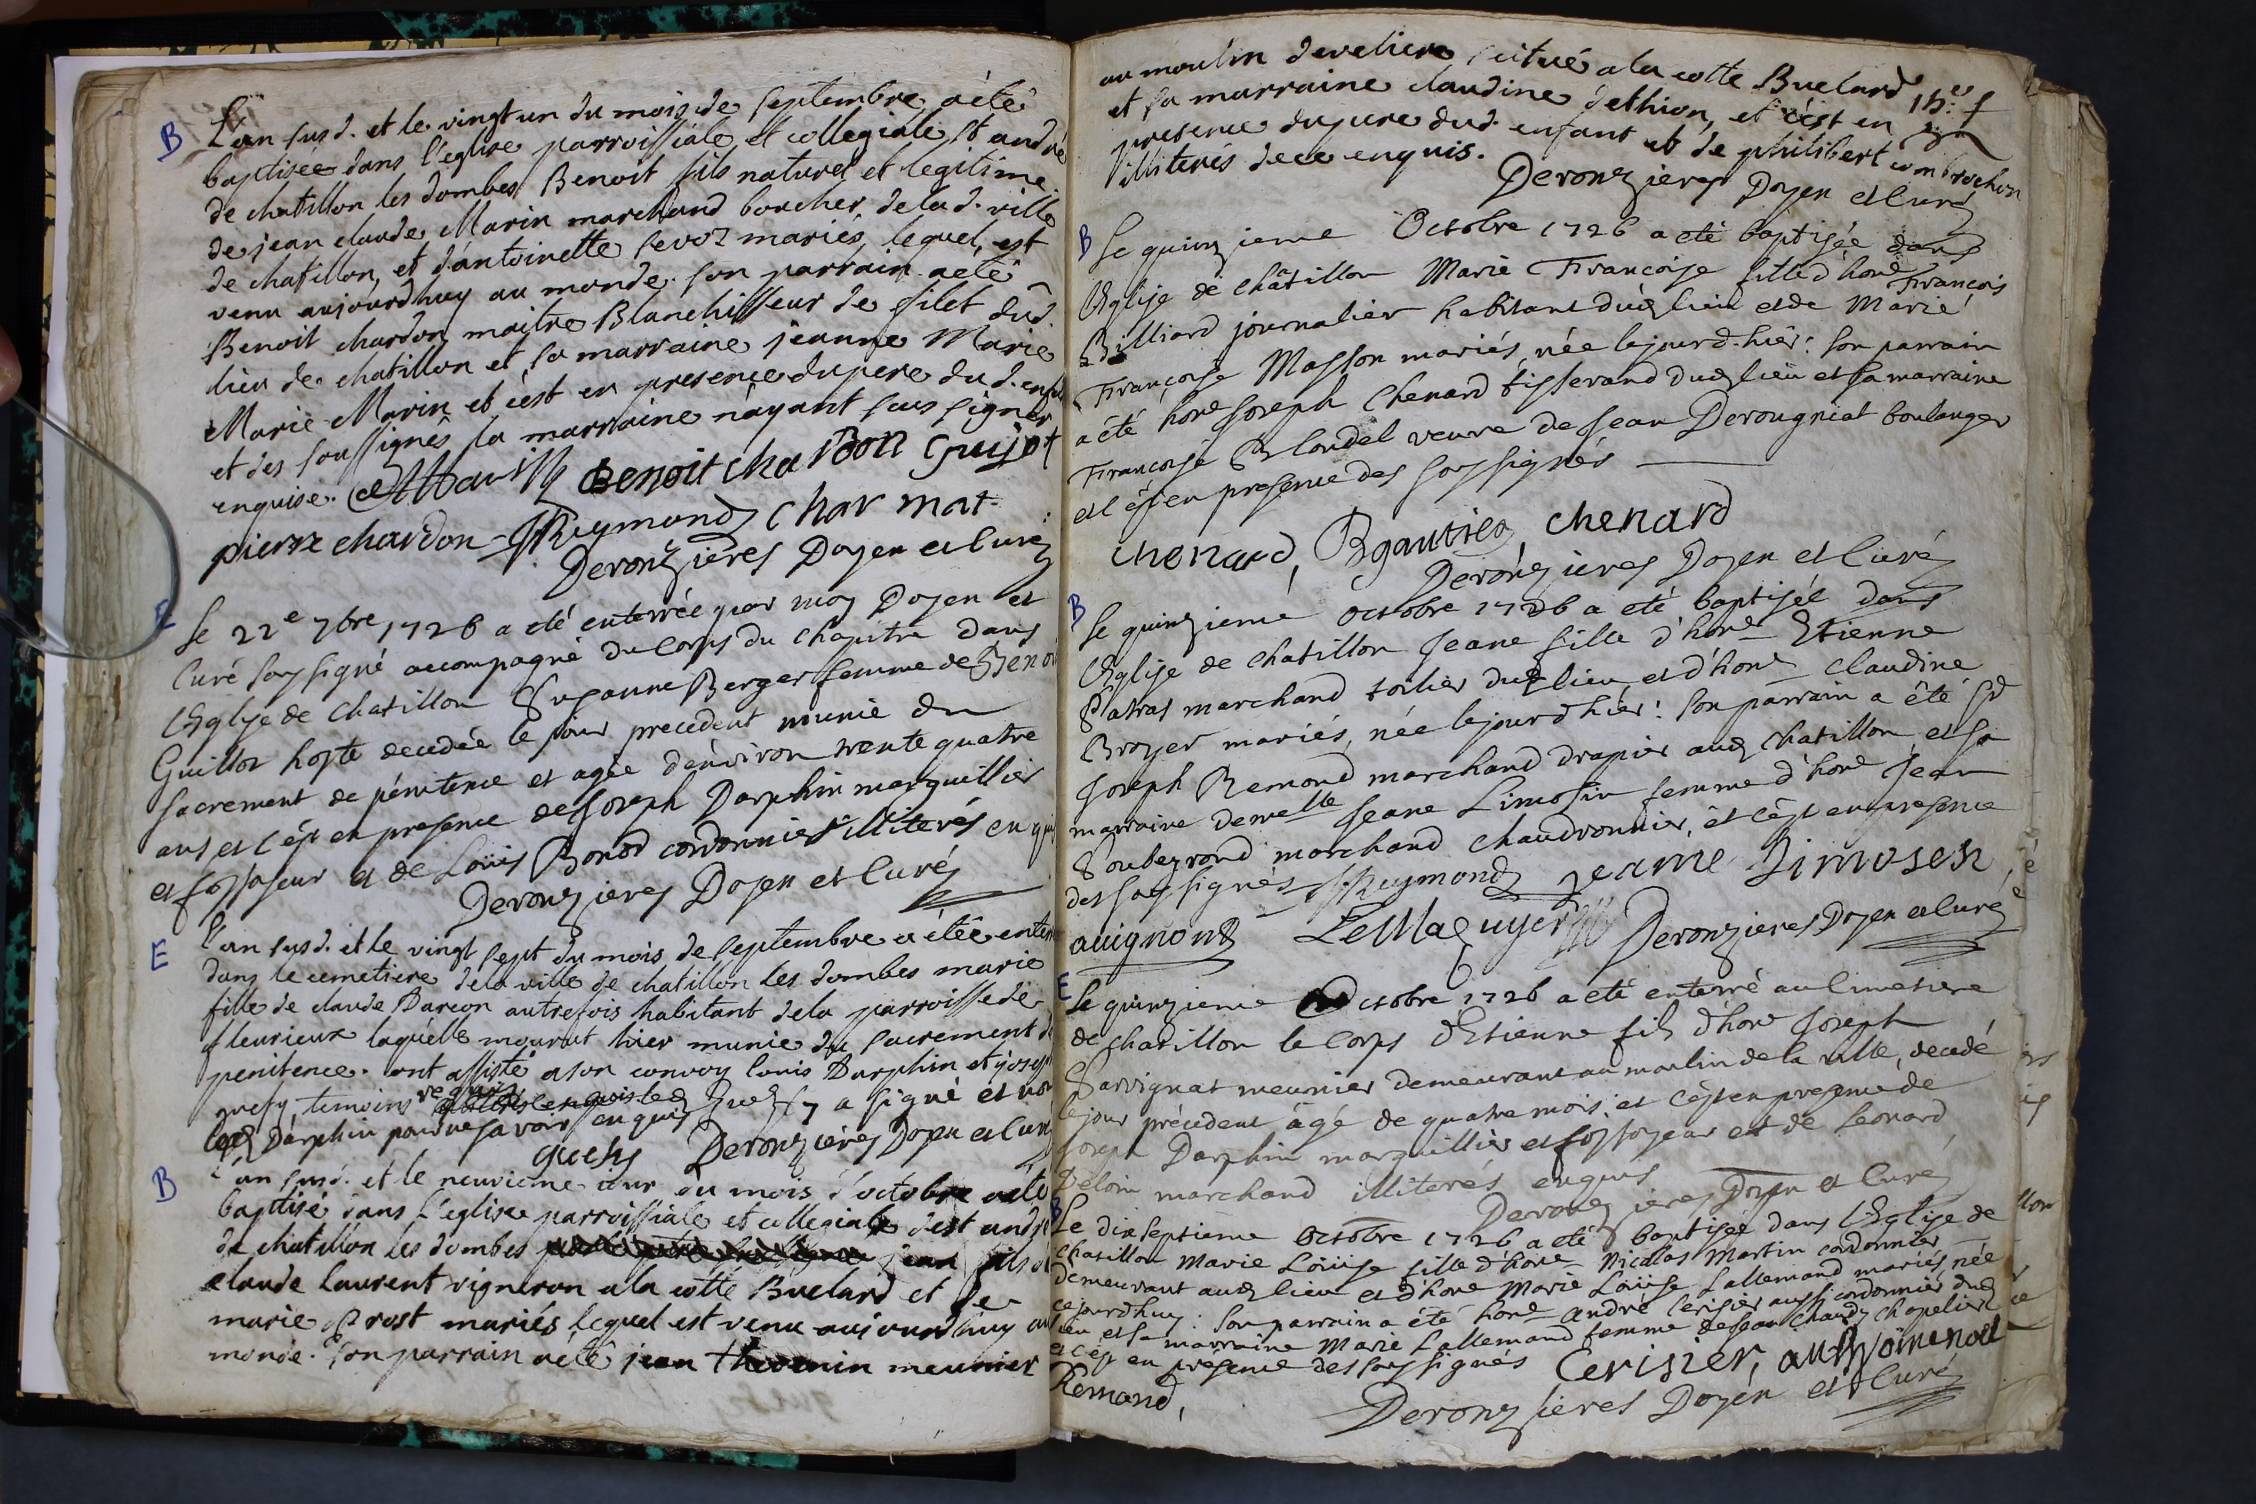 B L'an susd. et le vingt un du mois de septembre a été
baptisée dans l'eglise parroissiale et collegiale st andré
de chatillon les dombes Benoit fils naturel et legitime
de jean claude Marin marchand boucher de lad. ville
de chatillon, et d'antoinette sevoz mariés, lequel est
venu aujourdhuy au monde. son parrain a été
Benoit chardon maitre Blanchisseur de filet dud.
lieu de chatillon et sa marraine jeanne Marie
Marie Marin et c'est en presence du pere du d. enfant
et des soussignés la marraine n'ayant sceu signer
enquise. Benoit chardon Guijot
pierre chardon JReymond Char mat
Deronzieres Doyen et Curé
E Le 22e 7bre 1726 a été enterrée par moy Doyen et
Curé soussigné accompagné du Corps du Chapitre dans
l'Eglise de Chatillon Susanne Berger femme de Benoi
Guillot hoste decedée le jour precedent munie du
sacrement de pénitence et agée d'environ trente quatre
ans et c'est en presence de Joseph Darphin marguillier
et fossoyeur et de Loüis Bonod cordonnier illiterés enquis
Deronzieres Doyen et Curé
E L'an susd. et le vingt sept du mois de septembre a étée enter
dans le cemetiere de la ville de chatillon les dombes marie
fille de claude Darcon autrefois habitant de la parroisse de
fleurieux laquelle mourut hier munie du sacrement de
penitence. ont assisté a son convoy louis Darphin et joseph
guesy temoins a signé et non
led Darphin pour ne savoir enquis
guesy Deronzieres Doyen et Curé
B L'an susd. et le neuvieme jour du mois d'octobre a été
baptisé dans l'eglise parroissiale et collegiale de st andré
de chatillon les dombes jean fils de
claude laurent vigneron a la cotte Buelard et de
marie Prost mariés lequel est venu aujourdhuy au
monde. son parrain a été jean thevenin meunier
au moulin de veliere scitué a la cotte Buelard
et sa marraine claudine dethion, et c'est en
presence du pere dud. enfant et de philibert combrochon
illiterés de ce enquis.
Deronzieres Doyen et Curé
B Le quinzieme Octobre 1726 a eté baptisée dans
l'Eglise de Châtillon Marie Françoise fille d'hone François
Billiard journalier habitant dud lieu et de Marie
Françoise Masson mariés, née le jour d'hier: son parrain
a été hone Joseph Chenard tisserand dud lieu et sa marraine
Françoise Blondel veuve de Jean Derougniat boulanger
et c'est en presence des soussignés
chenard, Bgautier, chenard
Deronzieres Doyen et Curé
B Le quinzieme octobre 1726 a eté baptisée dans
l'Eglise de Chatillon Jeane fille d'hone Etienne
Patras marchand toilier dud lieu, et d'hone Claudine
Broyer mariés, née le jour d'hier: son parrain a été Sr
Joseph Remond marchand drapier aud chatillon et sa
marraine demelle Jeane Limosin femme d'hone Jean
Soubeyrand marchand chaudronnier, et c'est en presence
des soussignés JReymond jeanne Limosen
auignon LeMaguyer Deronzieres Doyen et Curé
E Le quinzieme Octobre 1726 a eté enterré au Cimetiere
de chatillon le Corps d'Etienne fils d'hone Joseph
Sarvignat meunier demeurant au moulin de la ville, decedé
le jour précedent âgé de quatre mois; et c'est en presence de
Joseph Darphin marguillier et fossoyeur et de Leonard
Deloin marchand illiterés enquis
Deronzieres Doyen et Curé
B Le dix septieme octobre 1726 a eté baptisée dans l'Eglise de
Chatillon Marie Loüise fille d'hone Nicolas Martin cordonnier
demeurant aud lieu et d'hone Marie Loüise Lallemand mariés, née
ce jourdhuy: son parrain a été hone André Cerisier aussi cordonnier dud
lieu et sa marraine Marie Lallemand femme de Jean Chandy chapelier
et c'est en presence des soussignés Cerisier,
Remond,
Deronzieres Doyen et Curé